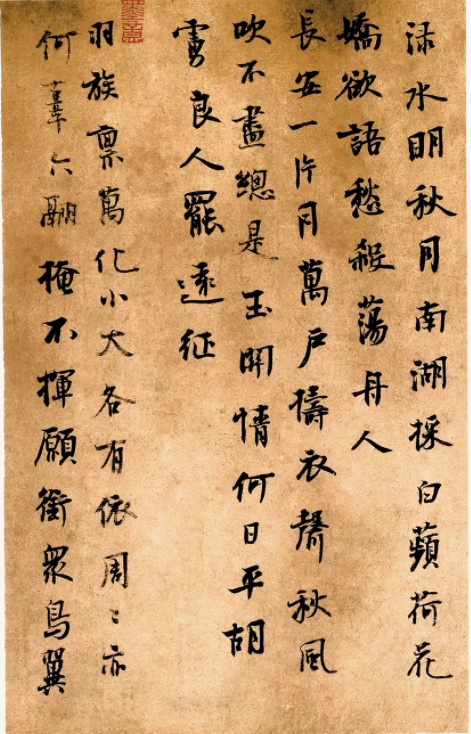 淥水明秋月南湖採白蘋荷花
嬌欲語愁殺蕩舟人
長安一片月萬戶擣衣聲秋風
吹不盡總是玉關情何日平胡
虜良人罷遠征
羽族稟萬化小大各有依周〻亦
何辜六翮掩不揮願銜眾鳥翼